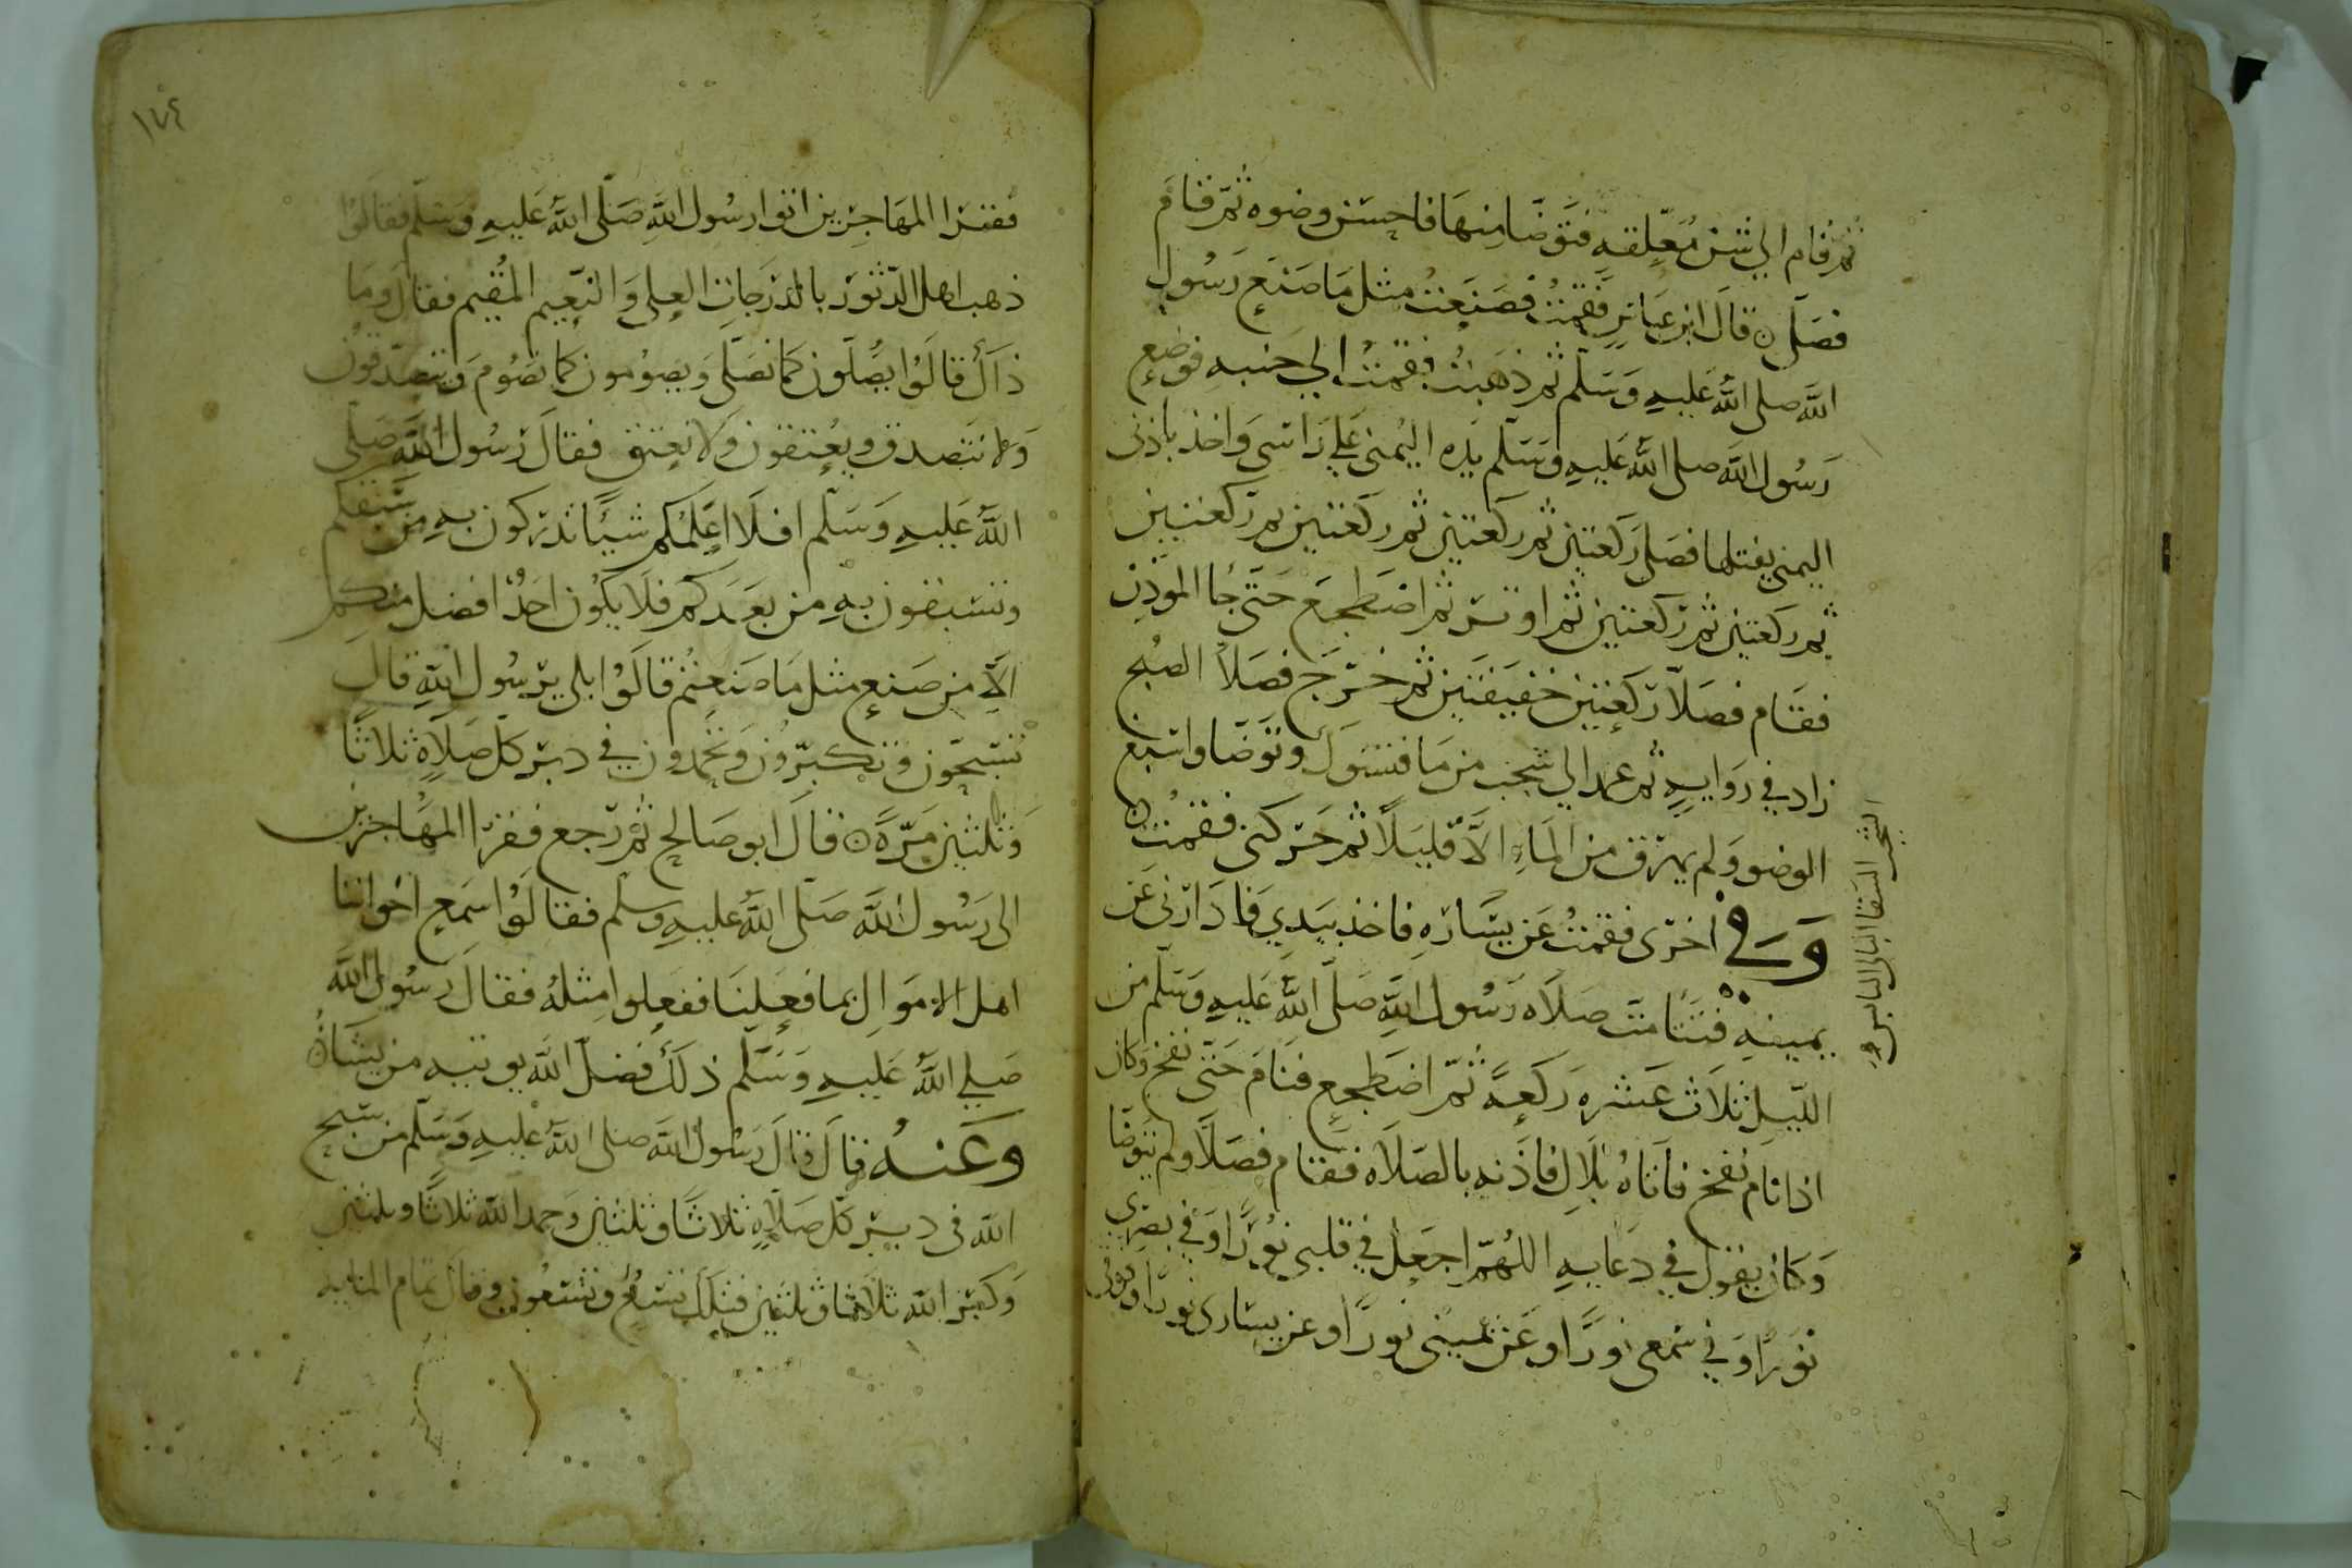 ثم قام الي شن معلقه فتوضا منها فاحسن وضوه ثم قام
فصلى ۞ قال ابن عباس فقمت فصنعت مثل ما صنع رسول
الله صلى الله عليه وسلم ثم ذهبت فقمت الي جنبه فوضع
رسول الله صلى الله عليه وسلم يده اليمنى علي راسي واخذ باذنى
اليمنى يفتلها فصلى ركعتين ثم ركعتين ثم ركعتين ثم ركعتين
ثم ركعتين ثم ركعتين ثم اوتر ثم اضطجع حتى جا الموذن
فقام فصلا ركعتين خفيفتين ثم خرج فصلا الصبح
زاد في روايه ثم عمد الي شجب من ما فتسوك وتوضا واسبغ
الوضو ولم يهرق من الماء الا قليلا ثم حركنى فقمت ۞
وفي اخرى فقمت عن يساره فاخذ بيدي فادارنى عن
يمينه فتتامت صلاه رسول الله صلى الله عليه وسلم من
الليل ثلاث عشره ركعة ثم اضطجع فنام حتى نفخ وكان
اذا نام نفخ فاتاه بلال فاذنه بالصلاه فقام فصلا ولم يتوضا
وكان يقول في دعايه اللهم اجعل في قلبي نورا وفي بصري
نورا وفي سمعى نورا وعن يمينى نورا وعن يسارى نورا وفوقى
الشجب السقا البالي اليابس
١٧٤
فقرا المهاجرين اتوا رسول الله صلى الله عليه وسلم فقالوا
ذهب اهل الدثور بالدرجات العلى والنعيم المقيم فقال وما
ذاك قالوا يصلون كما نصلى ويصومون كما نصوم ويتصدقون
ولا نتصدق ويعتقون ولا نعتق فقال رسول الله صلى
الله عليه وسلم افلا اعلمكم شيئا تدركون به من سبقكم
وتسبقون به من بعدكم فلا يكون احد افضل منكم
الا من صنع مثل ما صنعتم قالوا بلى يرسول الله قال
تسبحون وتكبرون وتحمدون في دبر كل صلاة ثلاثا
وثلثين مرة ۞ قال ابو صالح ثم رجع فقرا المهاجرين
الى رسول الله صلى الله عليه وسلم فقالوا سمع اخواننا
اهل الاموال بما فعلنا ففعلوا مثله فقال رسول الله
صلي الله عليه وسلم ذلك فضل الله يوتيه من يشا ۞
وعنه قال قال رسول الله صلى الله عليه وسلم من سبح
الله فى دبر كل صلاة ثلاثا وثلثين وحمد الله ثلاثا وثلثين
وكبر الله ثلاثا وثلثين فتلك تسع وتسعون وقال تمام المايه